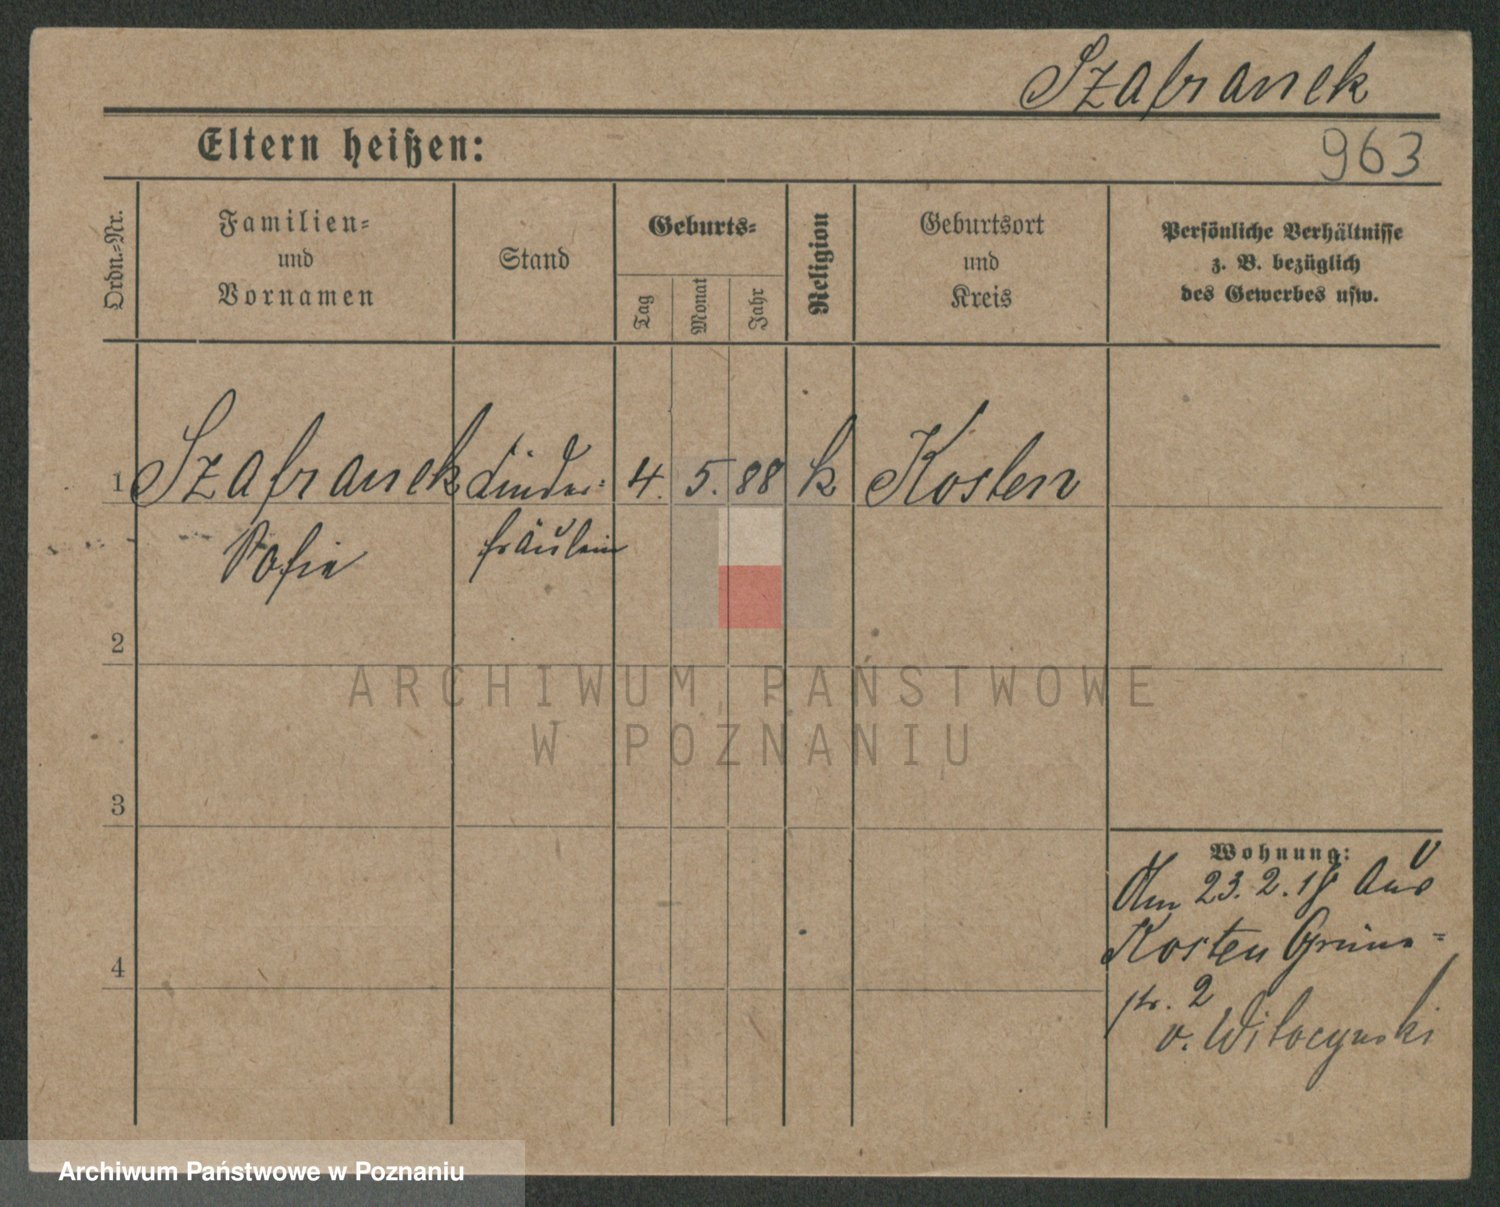 Szafranek
963
Eltern heißen:
Ordn.-Nr.
Familien-
und
Vornamen
Stand
Geburts-
Tag
Monat
Jahr
Religion
Geburtsort
und
Kreis
Persönliche Verhältnisse
z. B. bezüglich
des Gewerbes usw.
1 Szafranek Kinder- 4. 5. 88 k Kosten
Sofie fräulein
2
ARCHIWUM PAŃSTWOWE
W POZNANIU
3
Wohnung:
Am 23.2.18 aus
Kosten Grün-
4
str. 2
v.
Archiwum Państwowe w Poznaniu